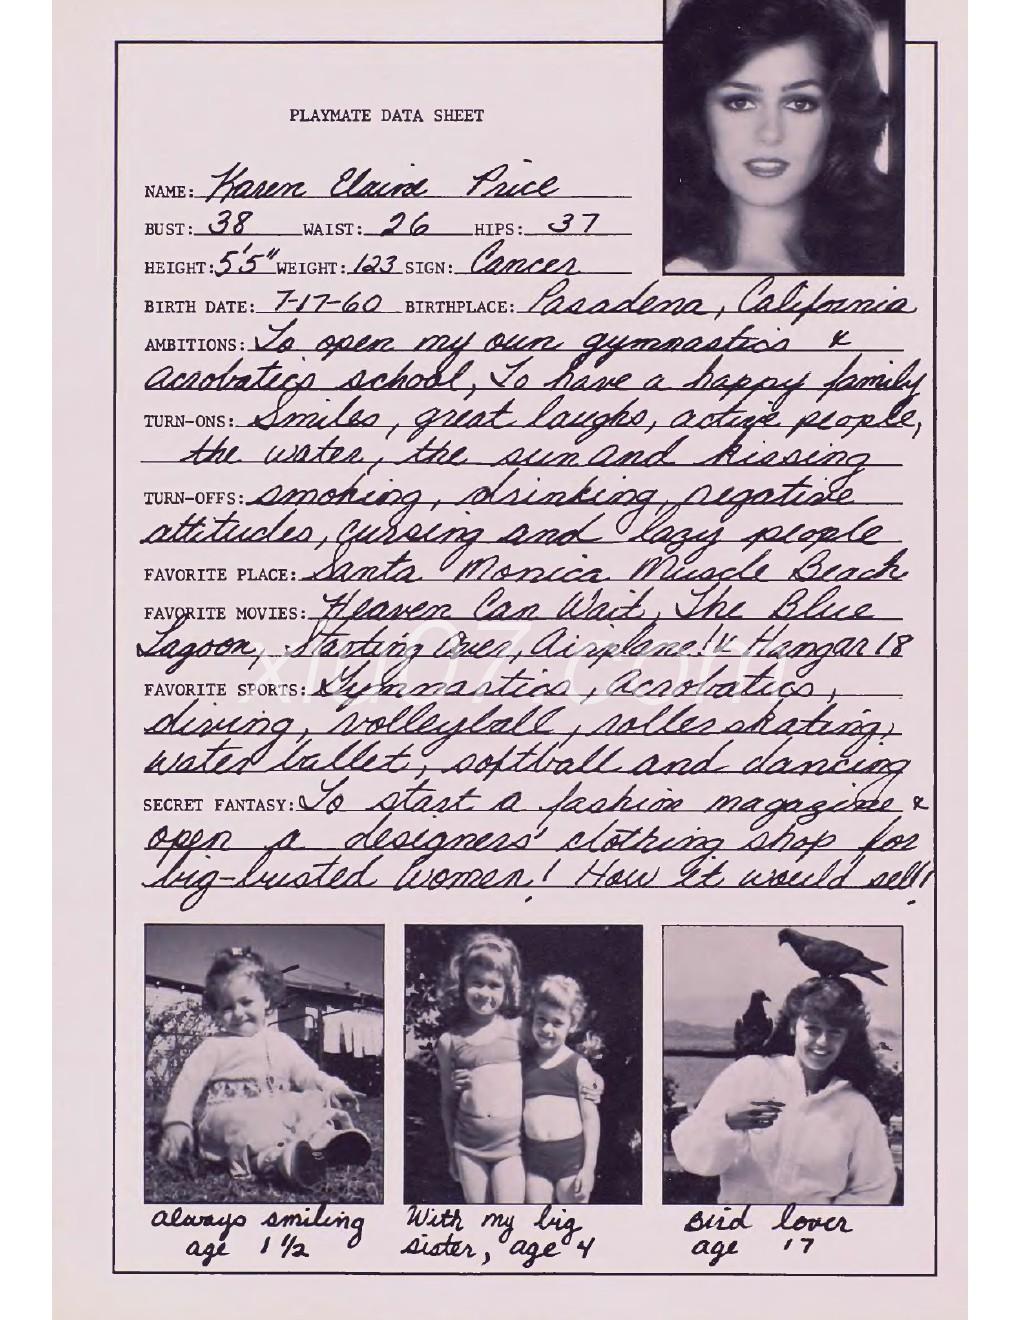 PLAYMATE DATA SHEET
NAME: Karen Elaine Price
BUST: 38 WAIST: 26 HIPS: 37
HEIGHT: 5'5" WEIGHT: 123 SIGN: Cancer
BIRTH DATE: 7-17-60 BIRTHPLACE: Pasadena, California
AMBITIONS: To open my own gymnastics &
acrobatics school, To have a happy family
TURN-ONS: Smiles, great laughs, active people,
the water, the sun and kissing
TURN-OFFS: smoking, drinking, negative
attitudes, cursing and lazy people
FAVORITE PLACE: Santa Monica Muscle Beach
FAVORITE MOVIES: Heaven Can Wait, The Blue
Lagoon, Starting Over, Airplane! & Hangar 18
FAVORITE SPORTS: Gymnastics, Acrobatics,
diving, volleyball, roller skating,
water ballet, softball and dancing
SECRET FANTASY: To start a fashion magazine &
open a designers' clothing shop for
big-busted women! How it would sell!
always smiling
age 1 1/2
With my big
sister, age 4
Bird lover
age 17